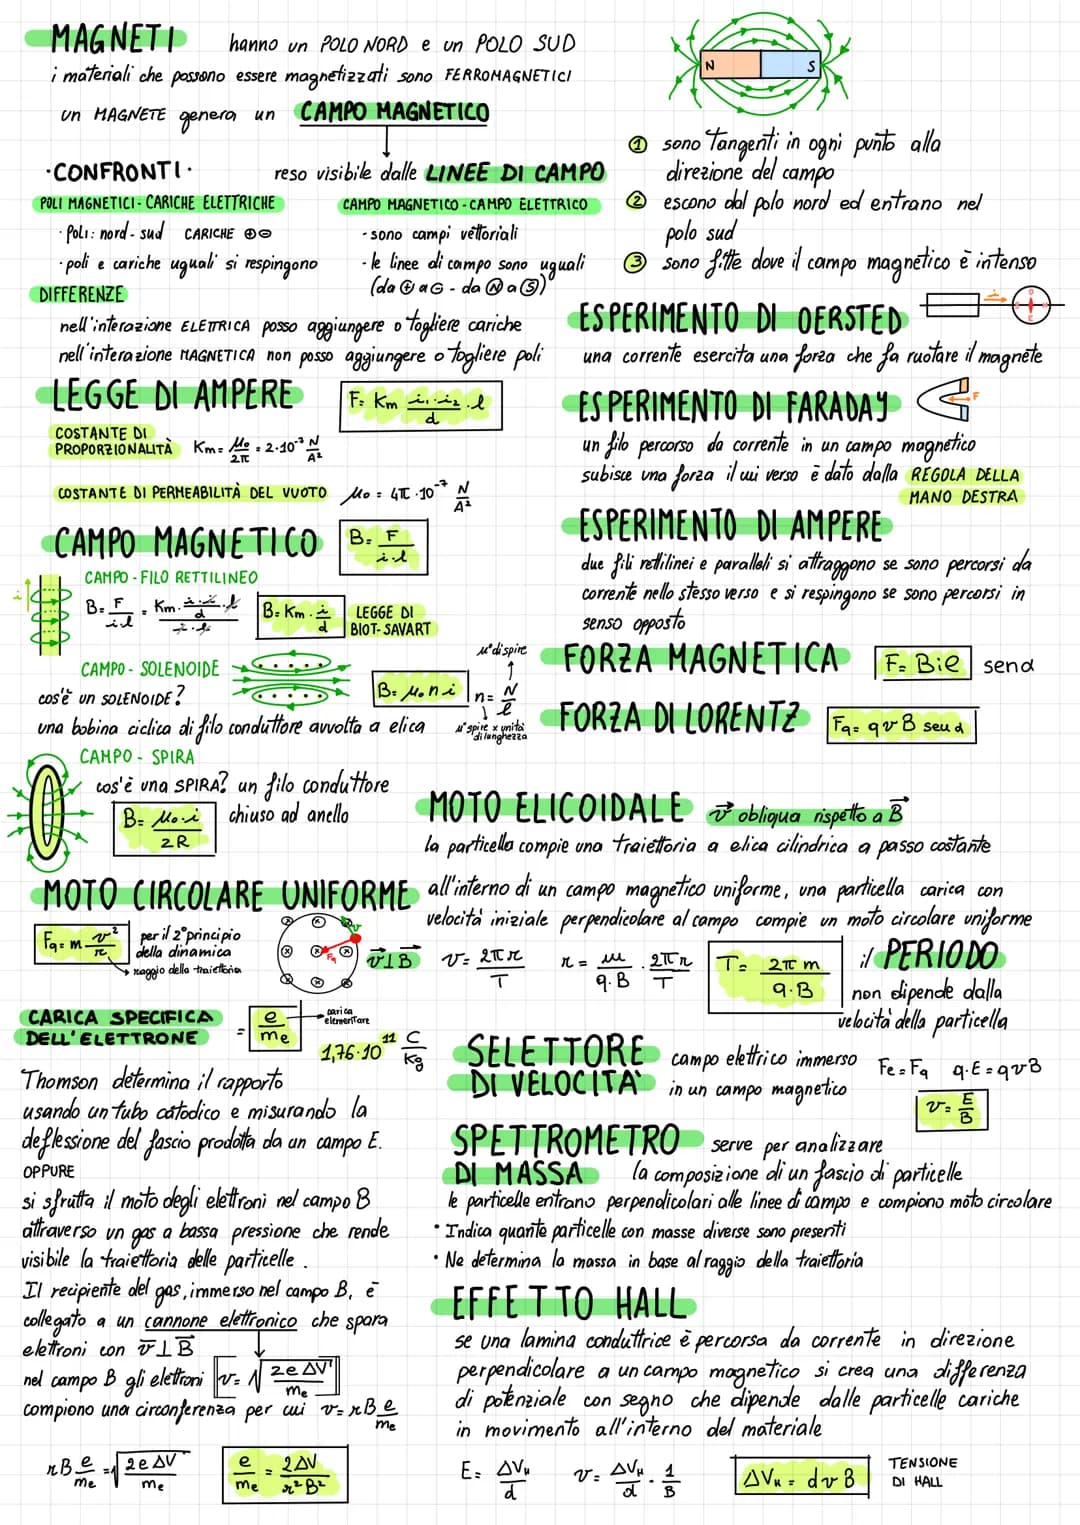 MAGNETI hanno un POLO NORD e un POLO SUD
i materiali che possono essere magnetizzati sono FERROMAGNETICI
un MAGNETE genera un CAMPO MAGNETICO
reso visibile dalle LINEE DI CAMPO
N S
① sono tangenti in ogni punto alla
direzione del campo
② escono dal polo nord ed entrano nel
polo sud
③ sono fitte dove il campo magnetico è intenso
·CONFRONTI·
POLI MAGNETICI - CARICHE ELETTRICHE
· Poli: nord - sud CARICHE ⊕⊖
· poli e cariche uguali si respingono
CAMPO MAGNETICO - CAMPO ELETTRICO
- sono campi vettoriali
- le linee di campo sono uguali
(da ⊕ a ⊖ - da Ⓝ a Ⓢ)
DIFFERENZE
nell'interazione ELETTRICA posso aggiungere o togliere cariche
nell'interazione MAGNETICA non posso aggiungere o togliere poli
ESPERIMENTO DI OERSTED
i
una corrente esercita una forza che fa ruotare il magnete
LEGGE DI AMPERE F= Km i₁·i₂/d · l
COSTANTE DI
PROPORZIONALITÀ Km= μ₀/2π = 2·10⁻⁷ N/A²
COSTANTE DI PERMEABILITÀ DEL VUOTO μ₀ = 4π·10⁻⁷ N/A²
ESPERIMENTO DI FARADAY
F
un filo percorso da corrente in un campo magnetico
subisce una forza il cui verso è dato dalla REGOLA DELLA
MANO DESTRA
ESPERIMENTO DI AMPERE
due fili rettilinei e paralleli si attraggono se sono percorsi da
corrente nello stesso verso e si respingono se sono percorsi in
senso opposto
CAMPO MAGNETICO B= F/i·l
CAMPO - FILO RETTILINEO
i
B= F/i·l = Km·i·i/d·l / i·l B= Km· i/d LEGGE DI
BIOT-SAVART
CAMPO - SOLENOIDE
B= μ₀ n i n= N/l
n° di spire
n° spire x unità
di lunghezza
cos'è un SOLENOIDE?
una bobina ciclica di filo conduttore avvolta a elica
FORZA MAGNETICA F= Bil send
FORZA DI LORENTZ Fq= qvB send
CAMPO - SPIRA
cos'è una SPIRA? un filo conduttore
chiuso ad anello
B= μ₀·i/2R
MOTO ELICOIDALE v obliqua rispetto a B
la particella compie una traiettoria a elica cilindrica a passo costante
MOTO CIRCOLARE UNIFORME all'interno di un campo magnetico uniforme, una particella carica con
velocità iniziale perpendicolare al campo compie un moto circolare uniforme
Fq= m v²/r per il 2° principio
della dinamica
→ raggio della traiettoria
v
Fq
v⊥B
v= 2πr/T r= m/q·B · 2πr/T T= 2πm/q·B il PERIODO
non dipende dalla
velocità della particella
CARICA SPECIFICA
DELL'ELETTRONE = e/me
carica
elementare
1,76·10¹¹ C/Kg
Thomson determina il rapporto
usando un tubo catodico e misurando la
deflessione del fascio prodotta da un campo E.
OPPURE
si sfrutta il moto degli elettroni nel campo B
attraverso un gas a bassa pressione che rende
visibile la traiettoria delle particelle.
Il recipiente del gas, immerso nel campo B, è
collegato a un cannone elettronico che spara
elettroni con v⊥B
nel campo B gli elettroni v= √2eΔV/me
compiono una circonferenza per cui v= rB e/me
rB e/me = √2eΔV/me e/me = 2ΔV/r²B²
SELETTORE
DI VELOCITÀ campo elettrico immerso
in un campo magnetico
Fe = Fq q·E = qvB
v= E/B
SPETTROMETRO
DI MASSA serve per analizzare
la composizione di un fascio di particelle
le particelle entrano perpendicolari alle linee di campo e compiono moto circolare
· Indica quante particelle con masse diverse sono presenti
· Ne determina la massa in base al raggio della traiettoria
EFFETTO HALL
se una lamina conduttrice è percorsa da corrente in direzione
perpendicolare a un campo magnetico si crea una differenza
di potenziale con segno che dipende dalle particelle cariche
in movimento all'interno del materiale
E= ΔVH/d v= ΔVH/d · 1/B ΔVH = dvB TENSIONE
DI HALL